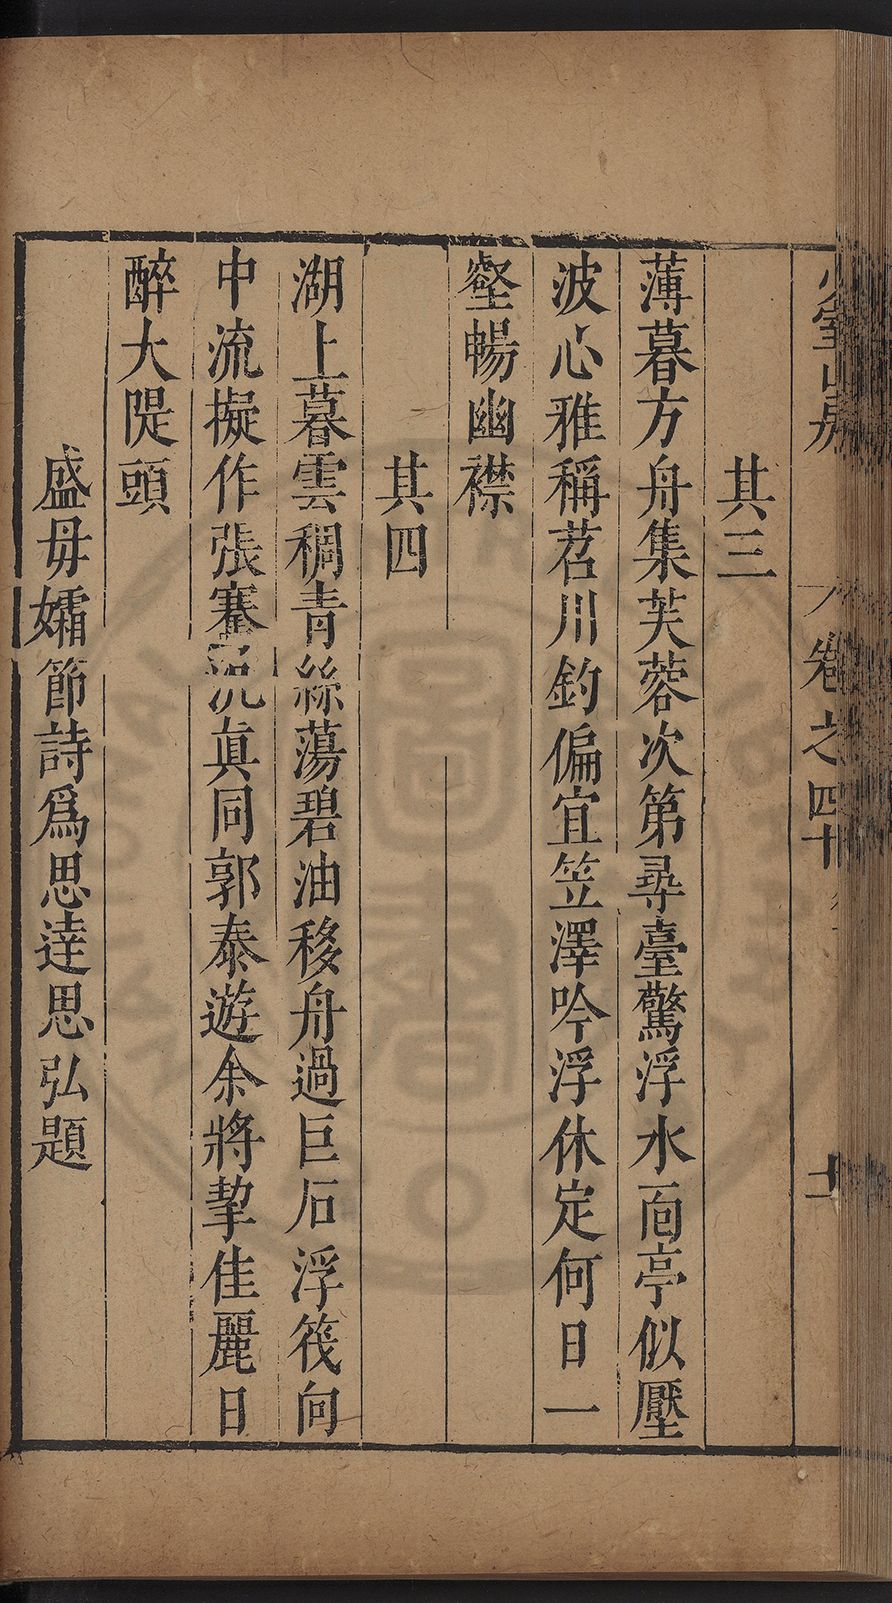 少室山房
卷之四十
十一
其三
薄暮方舟集芙蓉次第尋臺驚浮水面亭似壓
波心雅稱苕川釣偏宜笠澤吟浮休定何日一
壑暢幽襟
其四
湖上暮雲稠青絲蕩碧油移舟過巨石浮筏向
中流擬作張騫泛真同郭泰遊余將挈佳麗日
醉大隄頭
盛母孀節詩爲思達思弘題